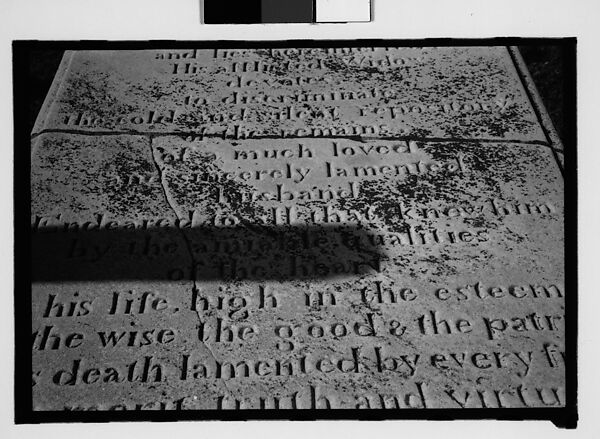 and lies here interr
His afflicted Widow
devotes
to discriminate
the cold and silent repository
of the remains
of a much loved
and sincerely lamented
husband
Endeared to all that knew him
by the amiable qualities
of the heart
his life, high in the esteem
the wise the good & the patri
death lamented by every fr
merit truth and virtu